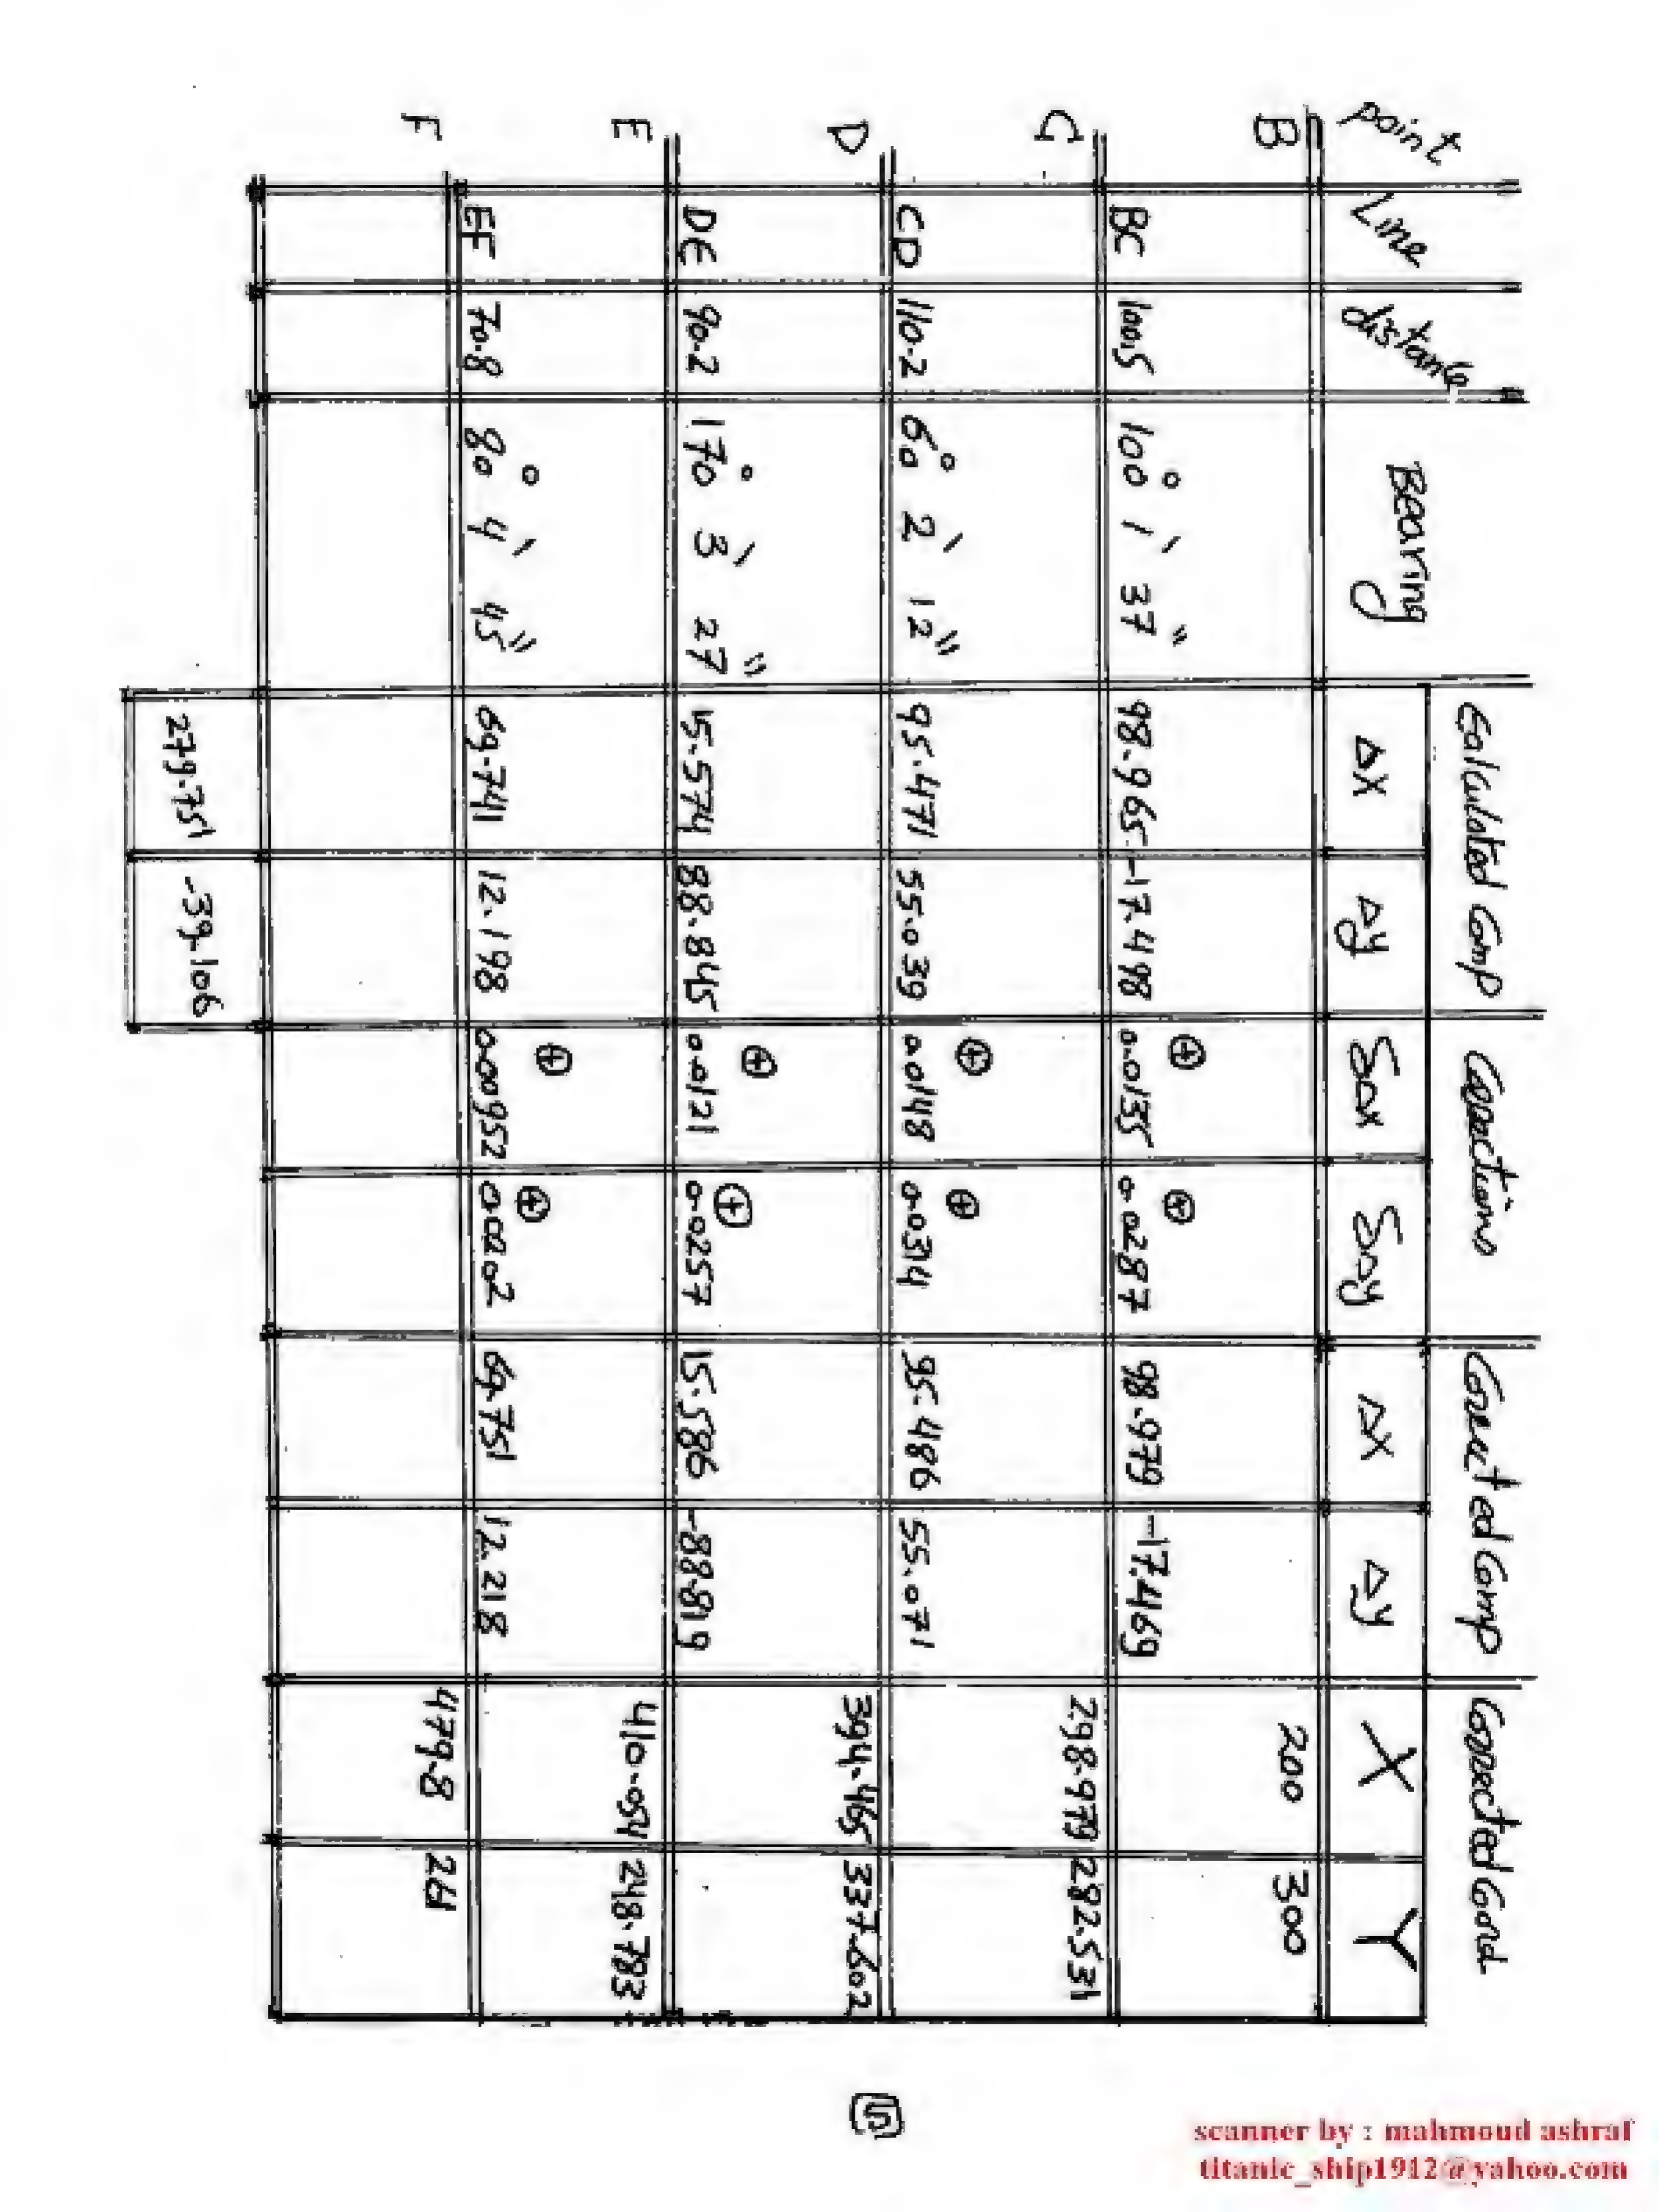 Calculated Comp Corrections Corrected Comp Corrected Coord
point Line distance Bearing ΔX Δy δΔx δΔy ΔX Δy X Y
B 200 300
BC 100.5 100° 1' 37" 98.965 -17.498 ⊕ 0.0135 ⊕ 0.0287 98.979 -17.469
C 298.979 282.531
CD 110.2 60° 2' 12" 95.471 55.039 ⊕ 0.0148 ⊕ 0.0314 95.486 55.071
D 394.465 337.602
DE 90.2 170° 3' 27" 15.574 88.845 ⊕ 0.0121 ⊕ 0.0257 15.586 -88.819
E 410.054 248.783
EF 70.8 80° 4' 45" 69.741 12.198 ⊕ 0.00952 ⊕ 0.0202 69.751 12.218
F 479.8 261
279.751 -39.106
5
scanner by : mahmoud ashraf
titanic_ship1912@yahoo.com